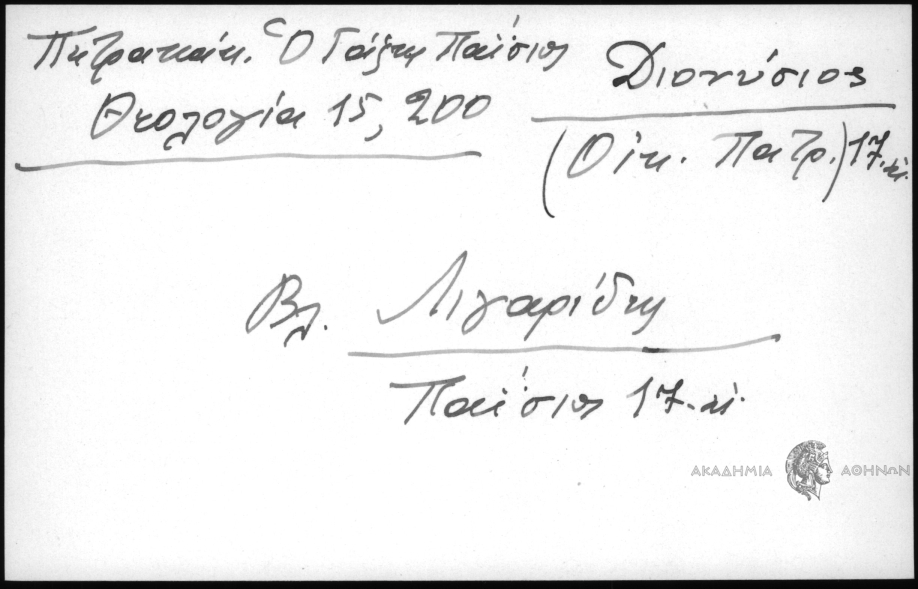 Πετρακάκ. Ὁ Γάζης Παΐσιος
Θεολογία 15, 200
Διονύσιος
(Οἰκ. Πατρ.) 17. αἰ.
Βλ. Λιγαρίδης
Παΐσιος 17. αἰ.
ΑΚΑΔΗΜΙΑ ΑΘΗΝΩΝ